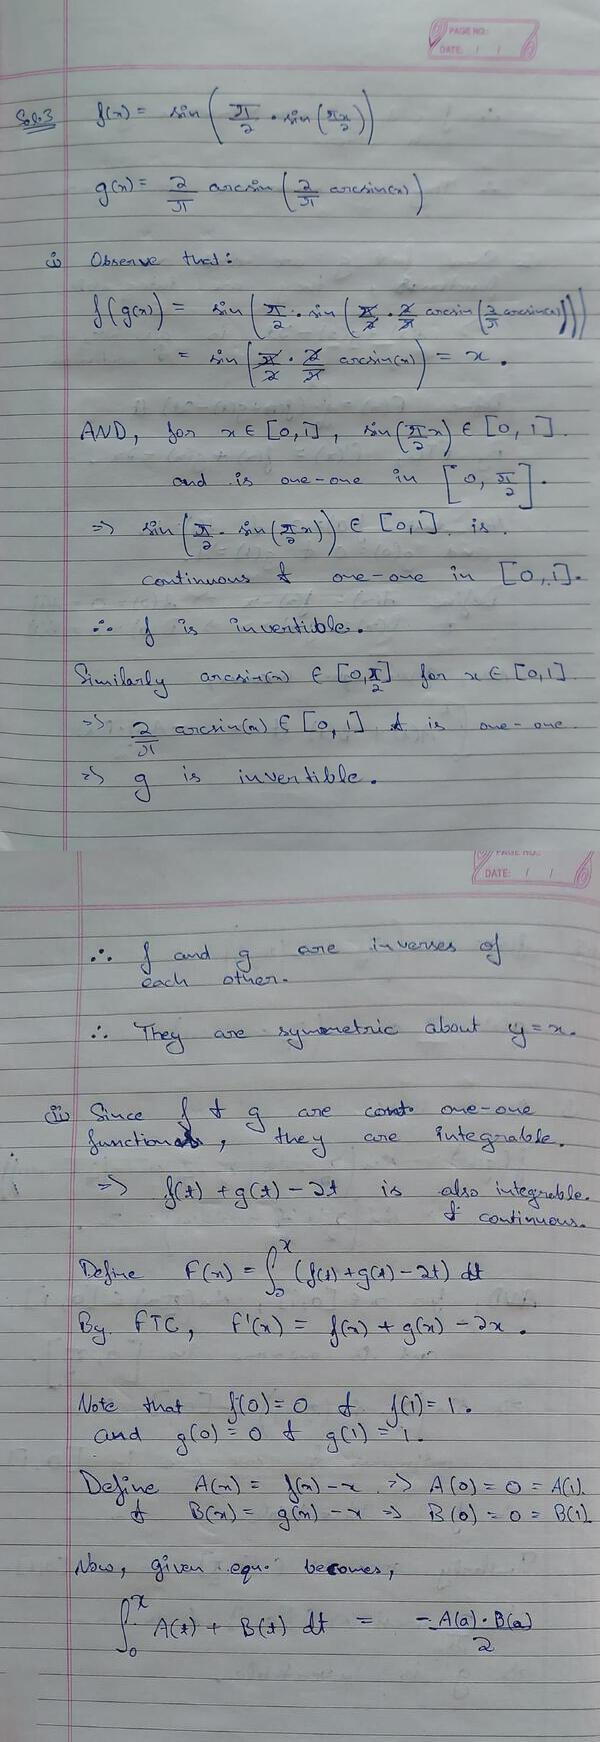 PAGE NO.:
DATE: / /
Sol. 3 f(x) = sin(π/2 · sin(πx/2))
g(x) = 2/π arcsin(2/π arcsin(x))
i) Observe that:
f(g(x)) = sin(π/2 · sin(π/2 · 2/π arcsin(2/π arcsin(x))))
= sin(π/2 · 2/π arcsin(x)) = x.
AND, for x ∈ [0,1], sin(π/2 x) ∈ [0,1].
and is one-one in [0, π/2].
=> sin(π/2 · sin(π/2 x)) ∈ [0,1] is
continuous & one-one in [0,1].
∴ f is invertible.
Similarly arcsin(x) ∈ [0, π/2] for x ∈ [0,1]
=> 2/π arcsin(x) ∈ [0,1] & is one-one
=> g is invertible.
PAGE NO.:
DATE: / /
∴ f and g are inverses of
each other.
∴ They are symmetric about y = x.
ii) Since f & g are cont. one-one
functions, they are integrable.
=> f(t) + g(t) - 2t is also integrable.
& continuous.
Define F(x) = ∫₀ˣ (f(t) + g(t) - 2t) dt
By FTC, F'(x) = f(x) + g(x) - 2x.
Note that f(0) = 0 & f(1) = 1.
and g(0) = 0 & g(1) = 1.
Define A(x) = f(x) - x => A(0) = 0 = A(1).
& B(x) = g(x) - x => B(0) = 0 = B(1).
Now, given equn. becomes,
∫₀ˣ A(t) + B(t) dt = -A(a)·B(a)/2